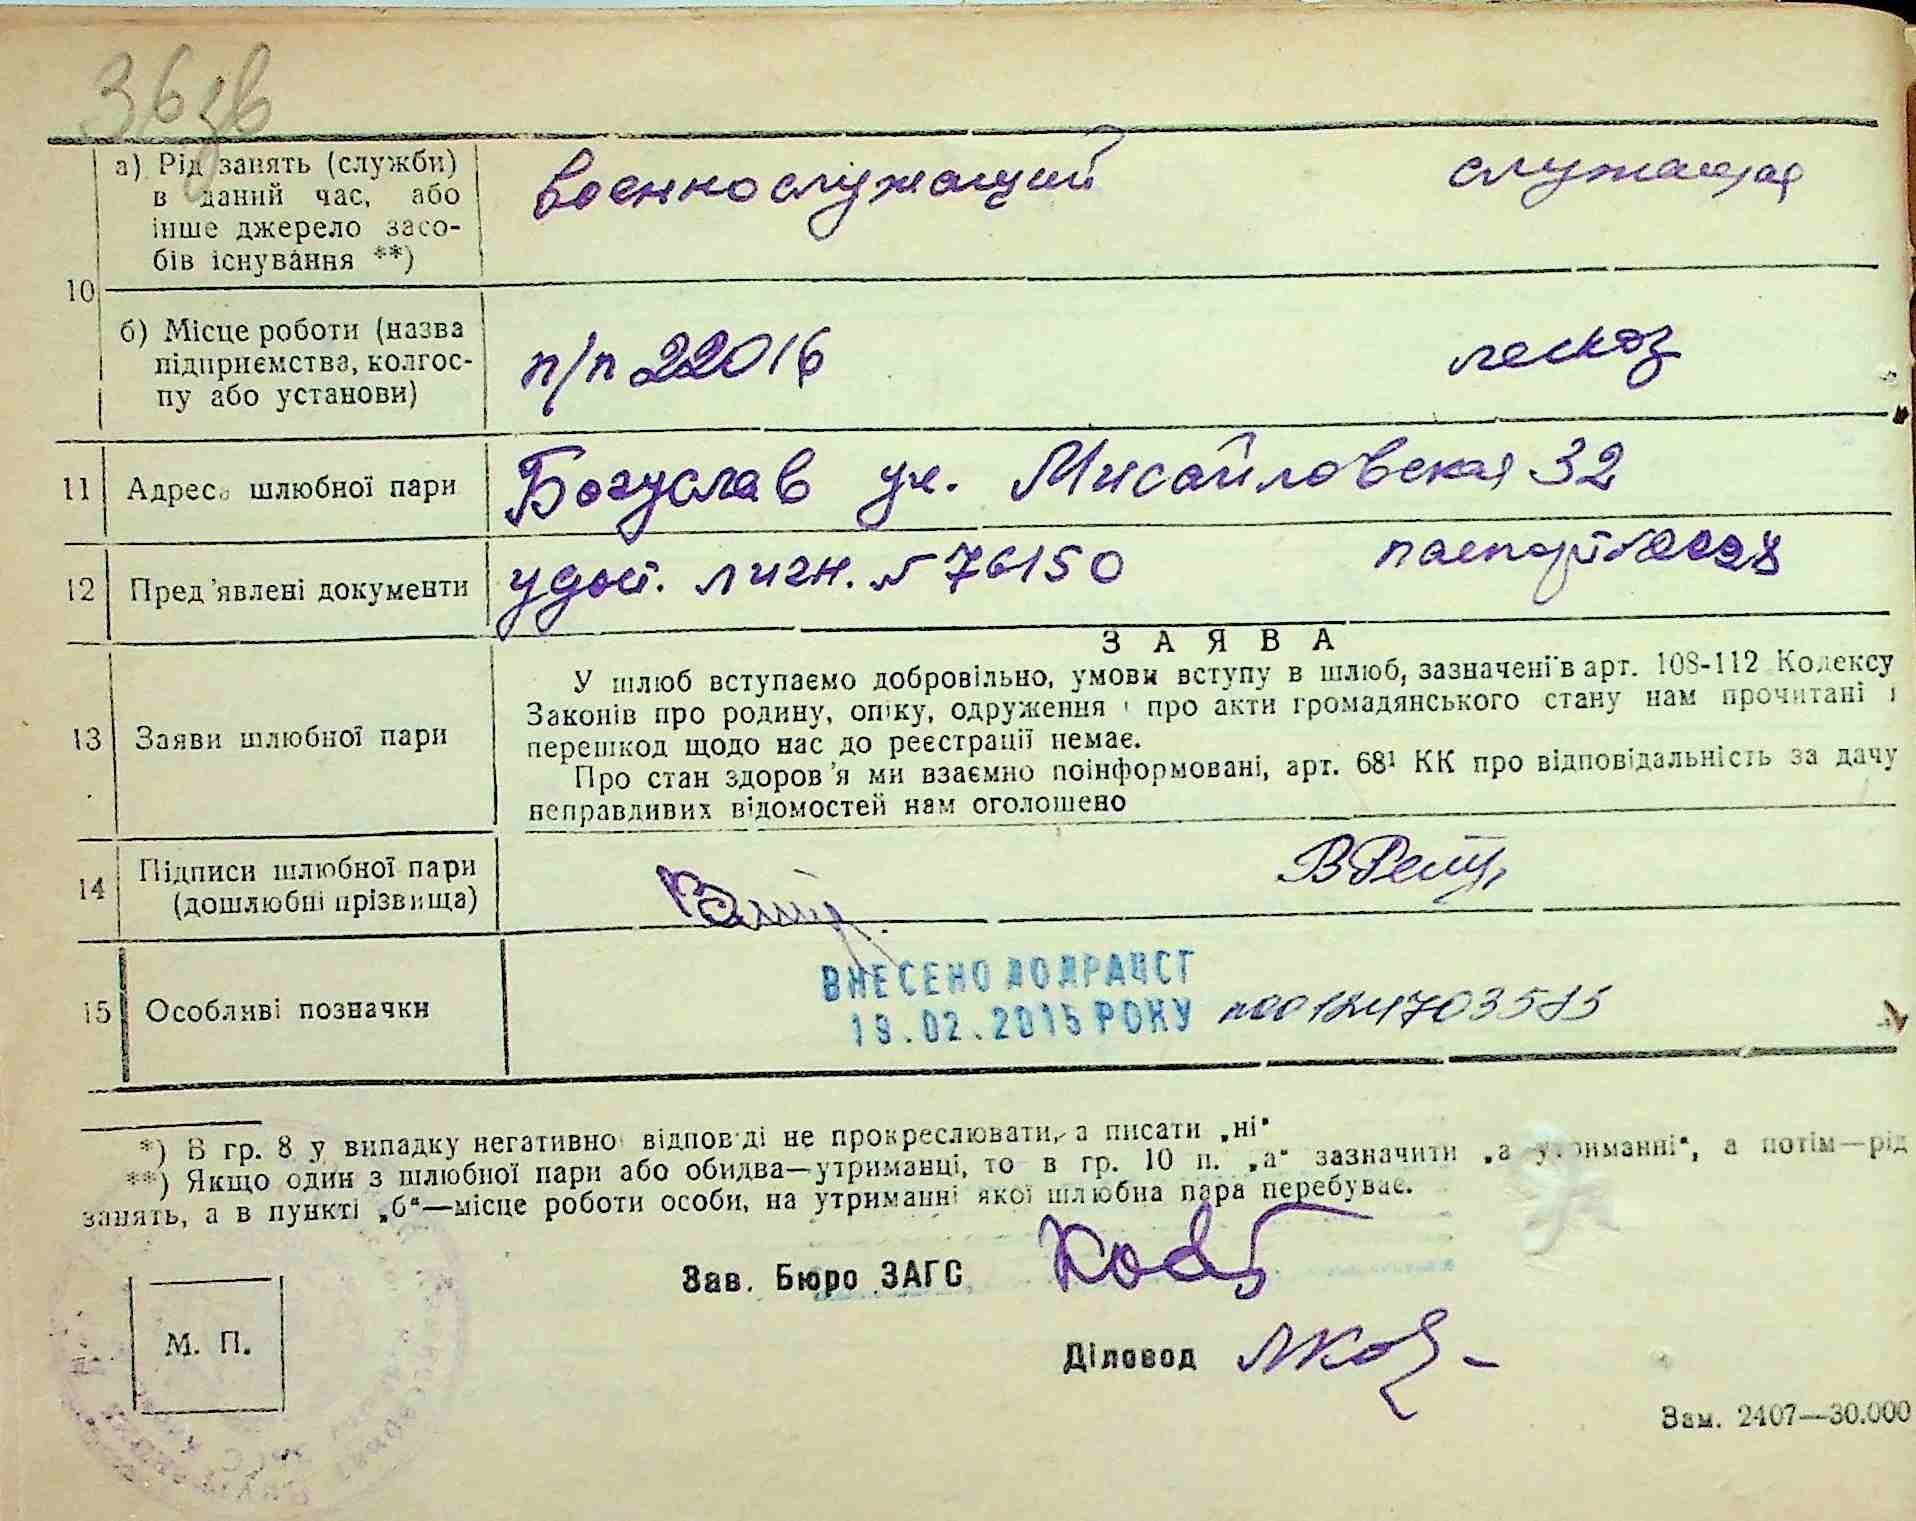 36зв
10
а) Рід занять (служби)
в даний час, або
інше джерело засо-
бів існування **)
военнослужащий
служащая
б) Місце роботи (назва
підприємства, колгос-
пу або установи)
п/п 22016
лесхоз
11 Адреса шлюбної пари
Богуслав ул. Мисайловская 32
12 Пред'явлені документи
удост. личн. № 76150
паспорт
13 Заяви шлюбної пари
ЗАЯВА
У шлюб вступаємо добровільно, умови вступу в шлюб, зазначені в арт. 108-112 Кодексу
Законів про родину, опіку, одруження і про акти громадянського стану нам прочитані і
перешкод щодо нас до реєстрації немає.
Про стан здоров'я ми взаємно поінформовані, арт. 68¹ КК про відповідальність за дачу
неправдивих відомостей нам оголошено
14 Підписи шлюбної пари
(дошлюбні прізвища)
15 Особливі позначки
ВНЕСЕНО ДО ДРАЦСГ
19.02.2015 РОКУ
*) В гр. 8 у випадку негативної відповіді не прокреслювати, а писати „ні“
**) Якщо один з шлюбної пари або обидва—утриманці, то в гр. 10 п. „а“ зазначити „а утриманні“, а потім—рід
занять, а в пункті „б“—місце роботи особи, на утриманні якої шлюбна пара перебуває.
Зав. Бюро ЗАГС
Діловод
М. П.
Зам. 2407—30.000